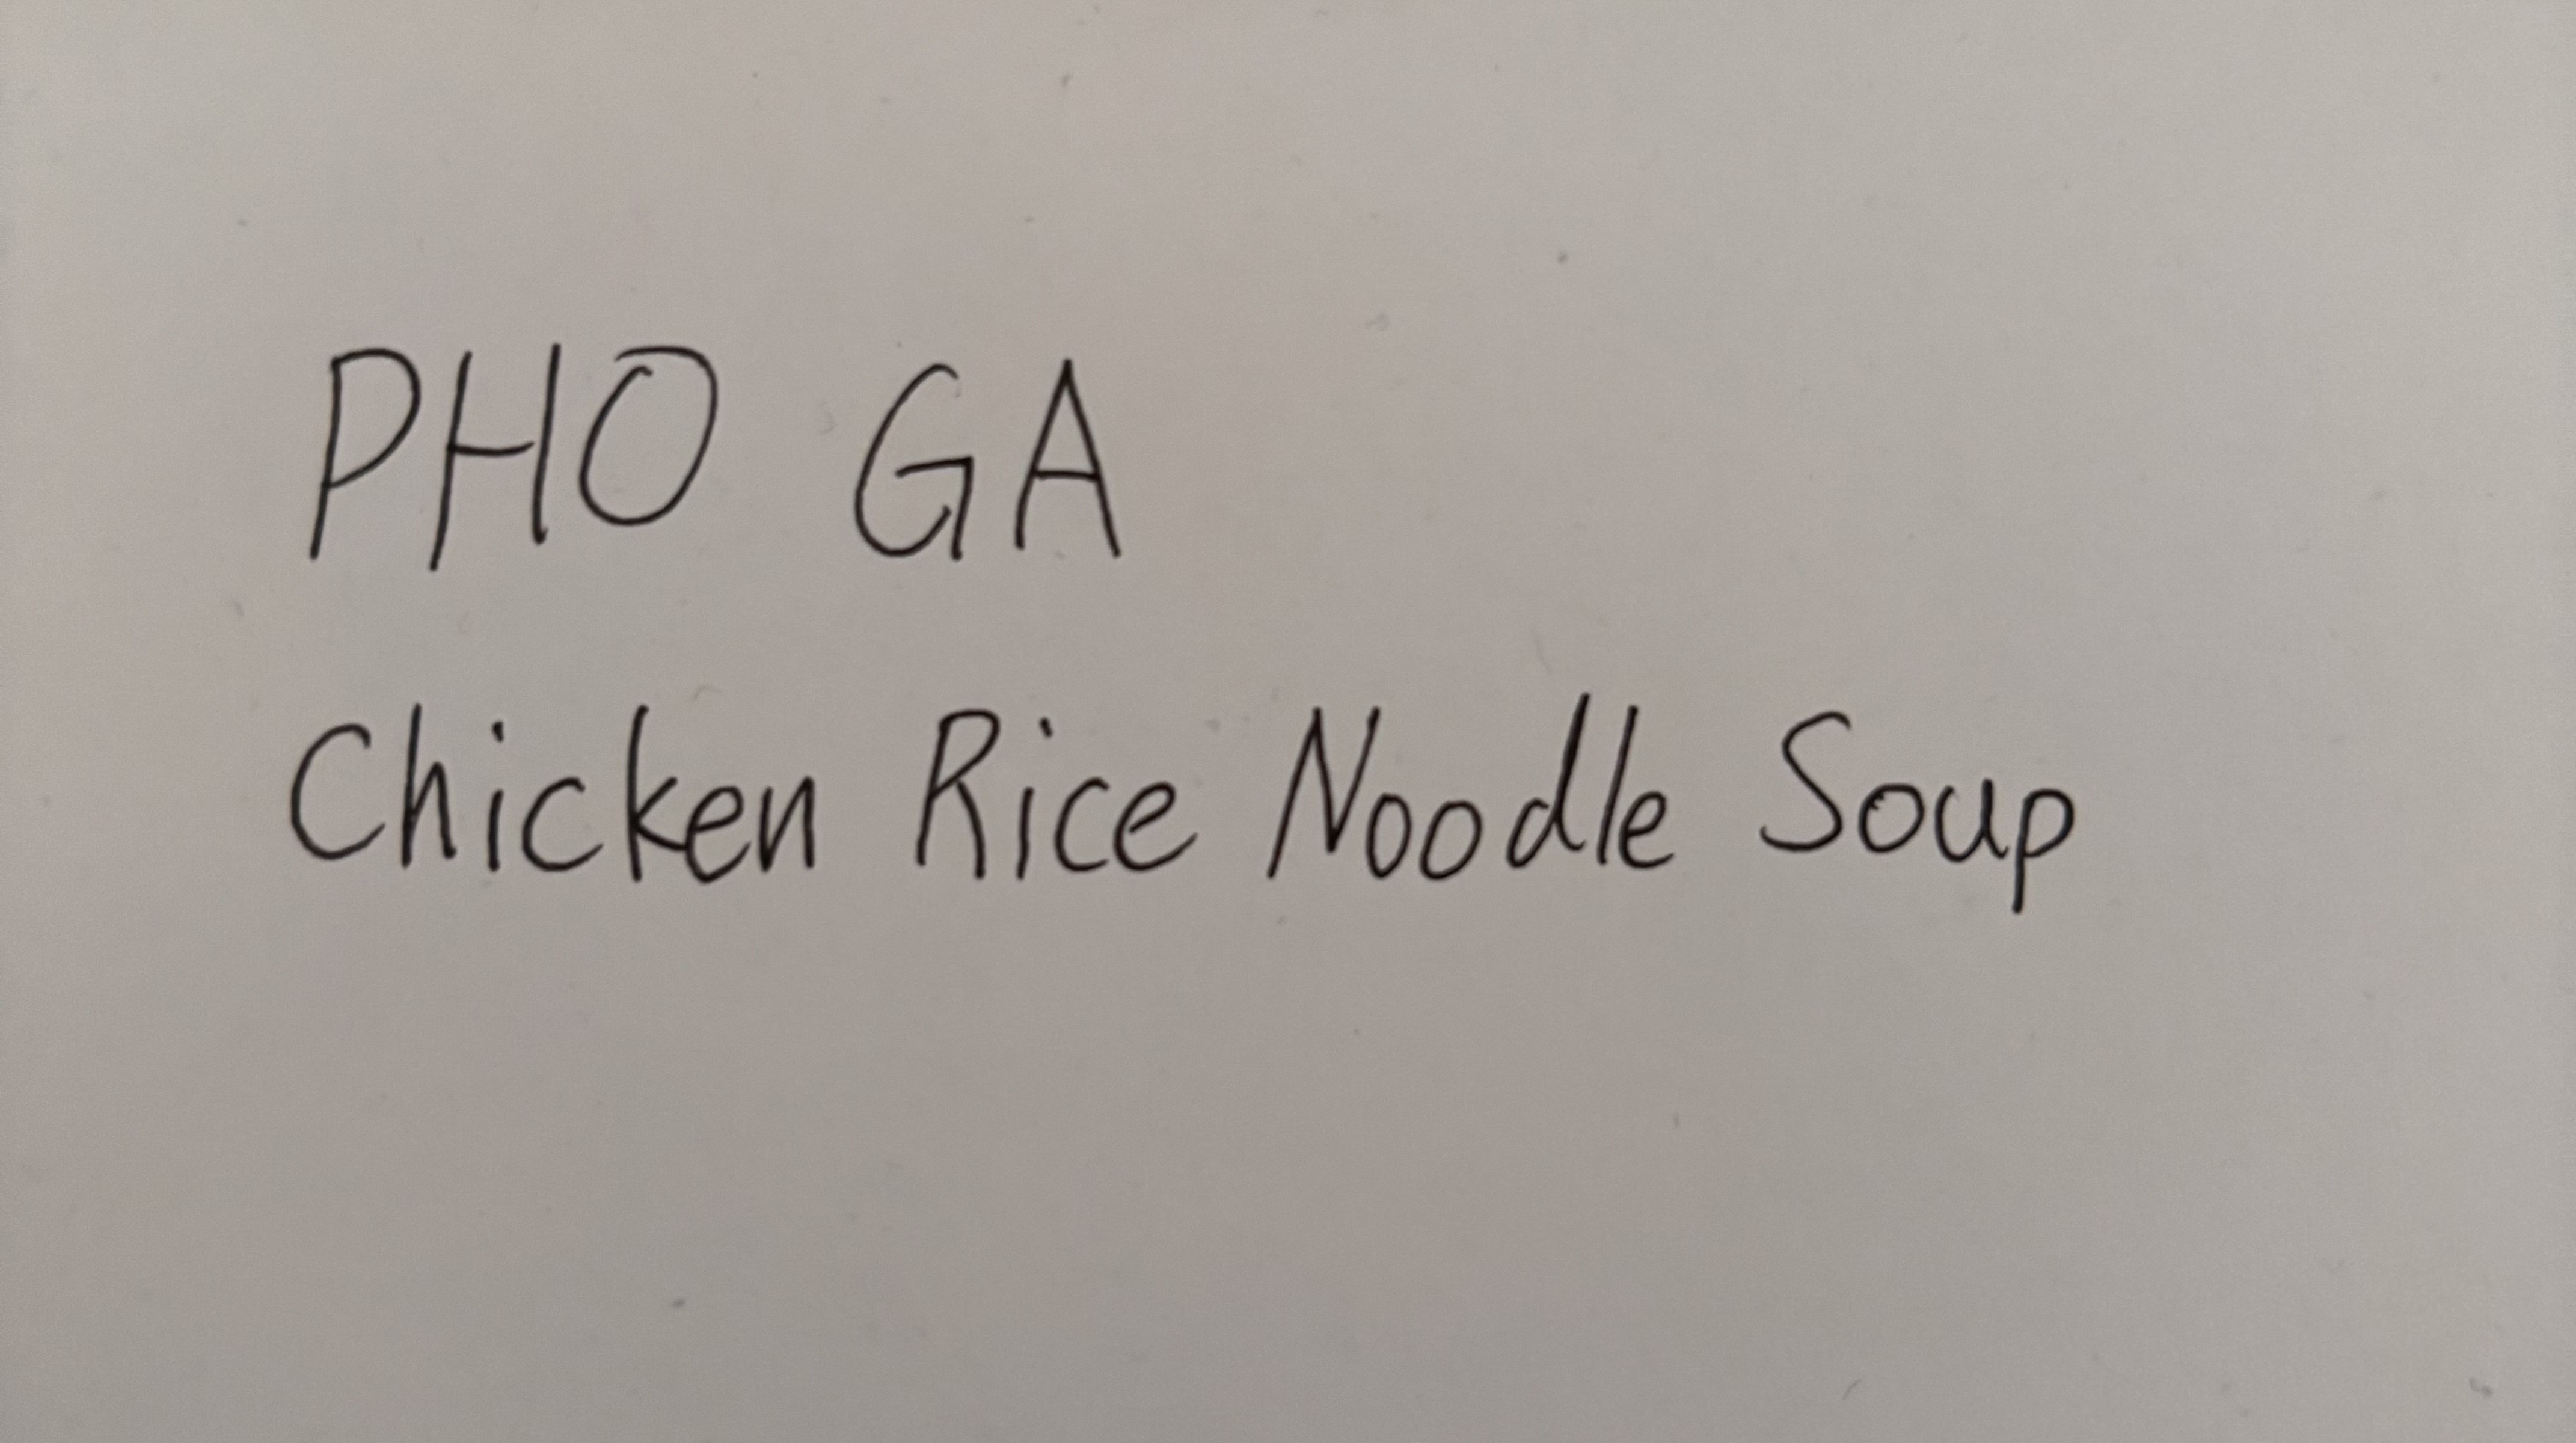 PHO GA
Chicken Rice Noodle Soup